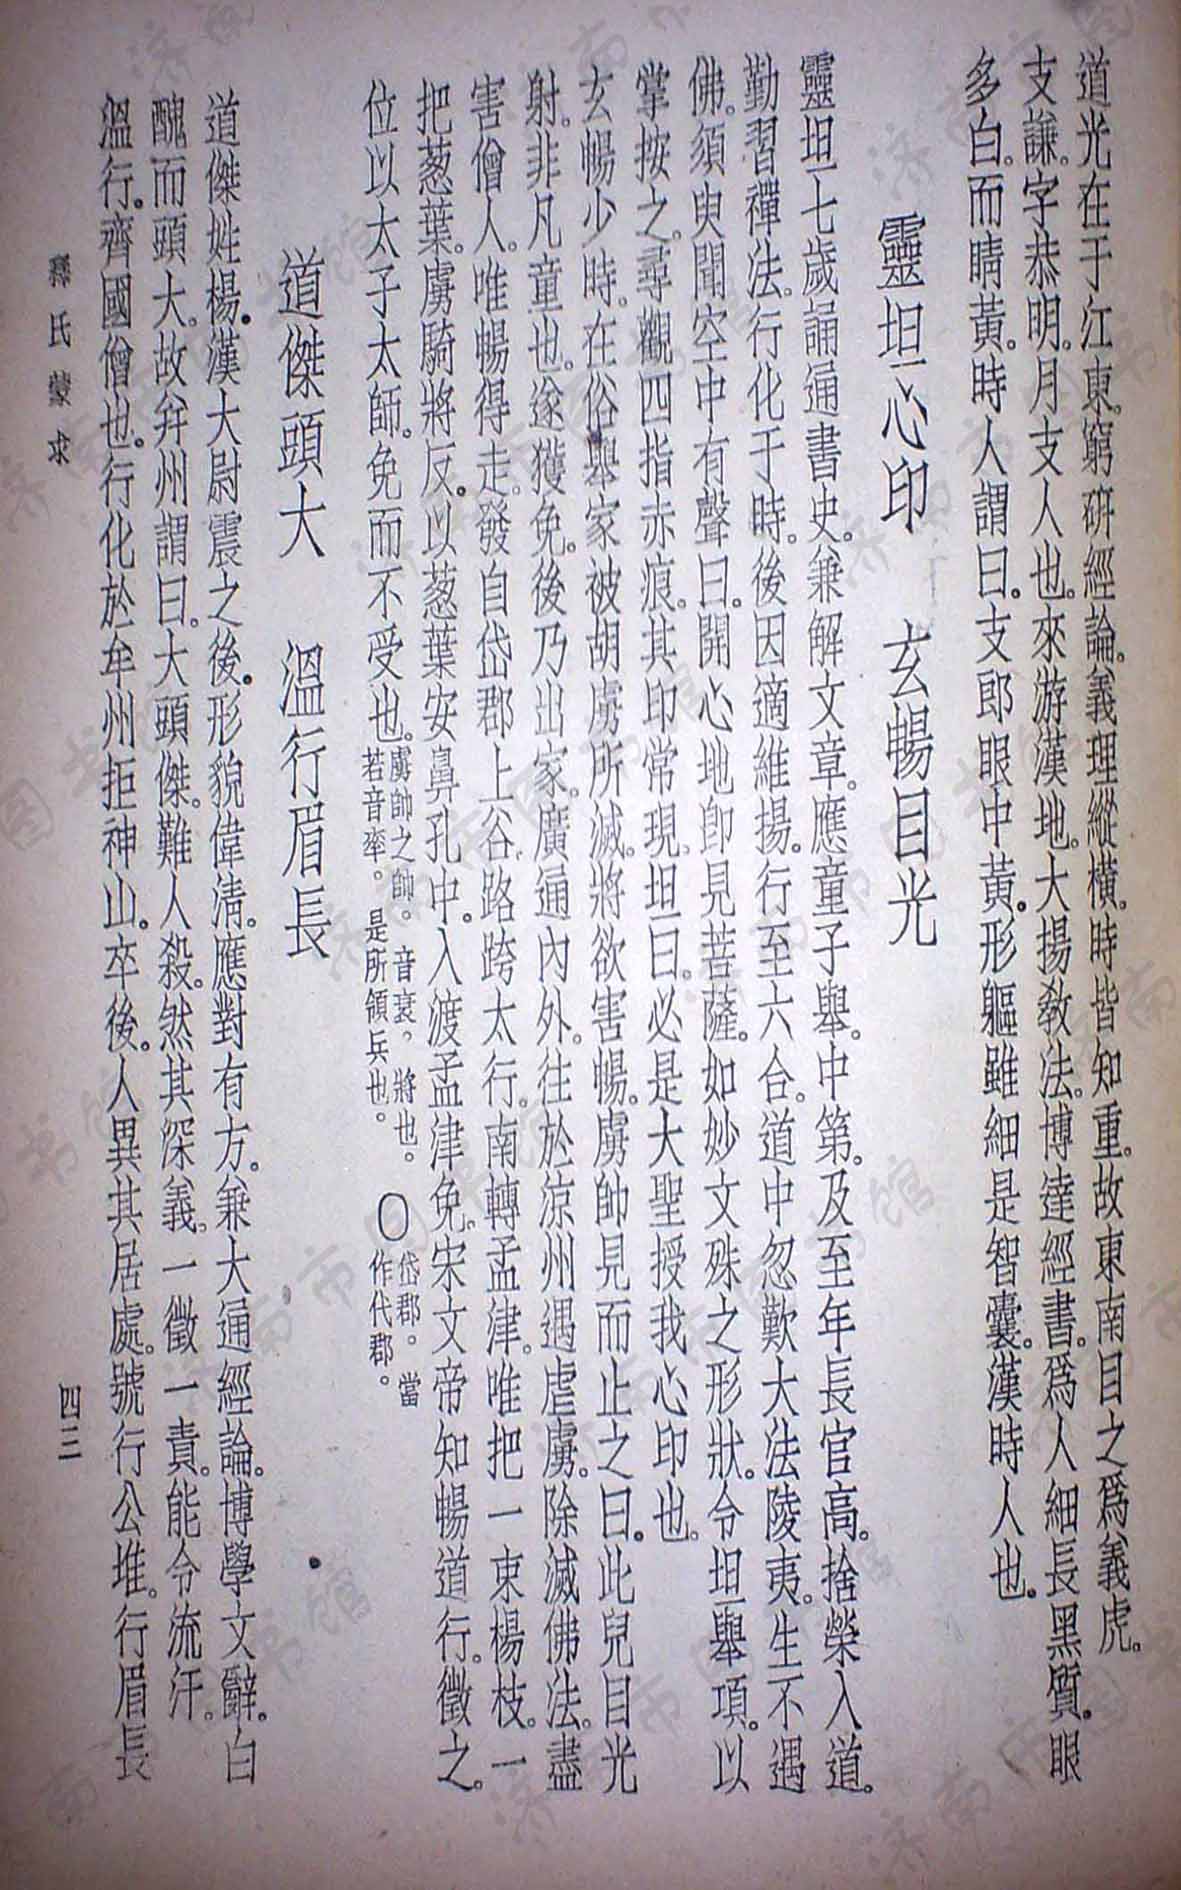 道光在于江東。窮研經論。義理縱橫。時皆知重。故東南目之爲義虎。
支謙。字恭明。月支人也。來游漢地。大揚敎法。博達經書。爲人細長黑質。眼
多白。而睛黃。時人謂曰。支郎眼中黃。形軀雖細是智囊。漢時人也。
靈坦心印 玄暢目光
靈坦七歲誦通書史。兼解文章。應童子舉。中第。及至年長官高。捨榮入道。
勤習禪法。行化于時。後因適維揚。行至六合。道中忽歎大法陵夷。生不遇
佛。須臾聞空中有聲曰。開心地卽見菩薩。如妙文殊之形狀。令坦舉項。以
掌按之。尋觀四指赤痕。其印常現。坦曰。必是大聖授我心印也。
玄暢少時。在俗舉家被胡虜所滅。將欲害暢。虜帥見而止之曰。此兒目光
射。非凡童也。遂獲免。後乃出家。廣通內外。往於涼州遇虐虜。除滅佛法。盡
害僧人。唯暢得走。發自岱郡上谷。路跨太行。南轉孟津。唯把一束楊枝。一
把葱葉。虜騎將反。以葱葉安鼻孔中。入渡孟津免。宋文帝知暢道行。徵之。
位以太子太師。免而不受也。虜帥之帥。音衰。將也。若音率。是所領兵也。〇岱郡。當作代郡。
道傑頭大 溫行眉長
道傑姓楊。漢大尉震之後。形貌偉淸。應對有方。兼大通經論。博學文辭。白
醜而頭大。故幷州謂曰。大頭傑。難人殺。然其深義。一徵一責。能令流汗。
溫行。齊國僧也。行化於牟州拒神山。卒後。人異其居處。號行公堆。行眉長
釋氏蒙求 四三
济南市图书馆